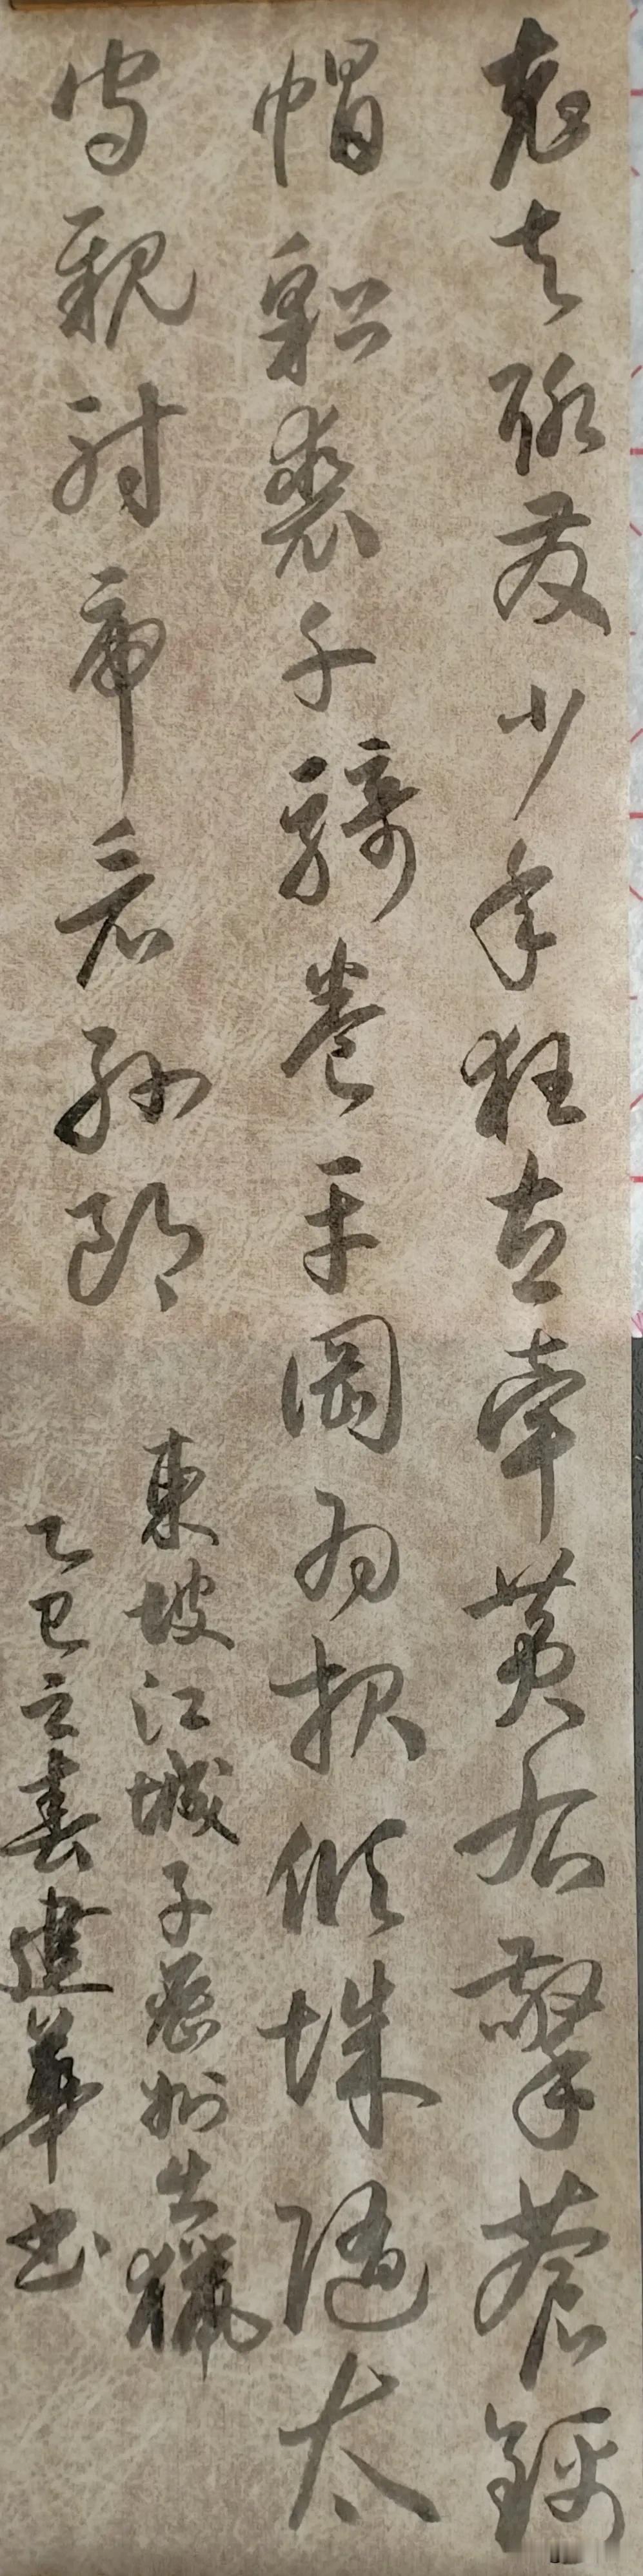 老夫聊发少年狂左牵黄右擎苍锦
帽貂裘千骑卷平冈为报倾城随太
守亲射虎看孙郎
東坡江城子密州出猎
乙巳立春建华书